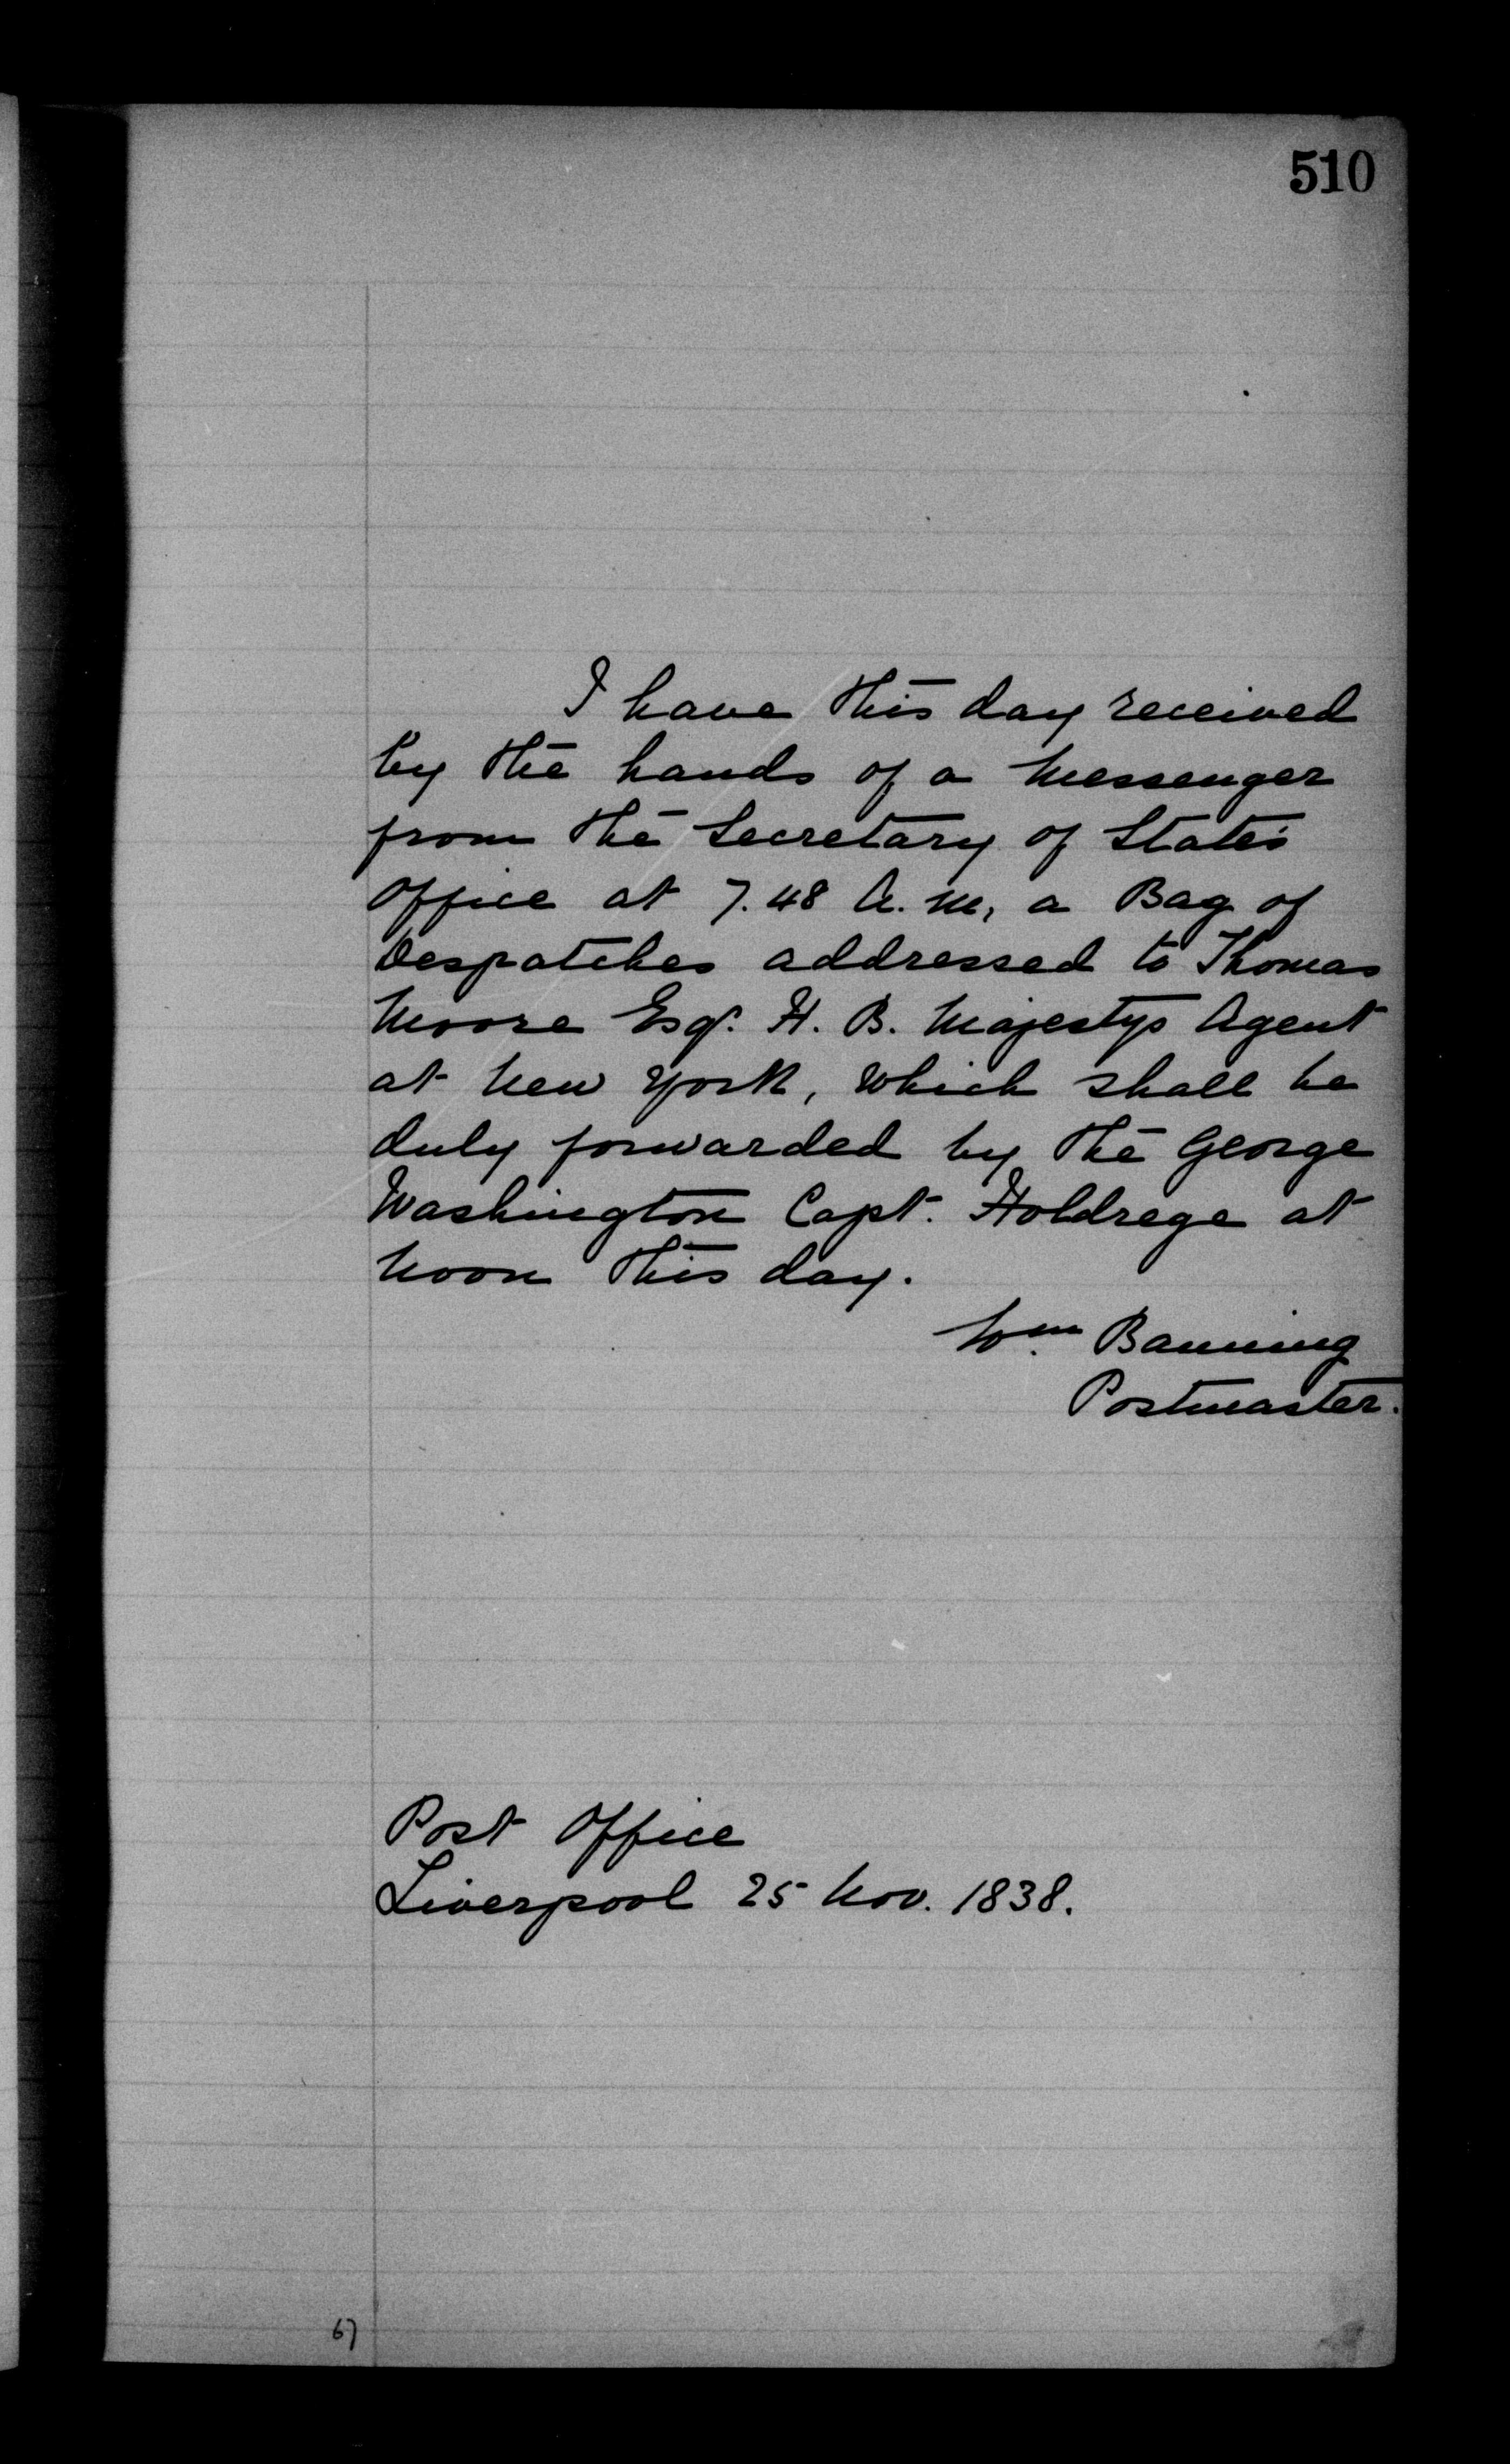 510
I have this day received
by the hands of a Messenger
from the Secretary of State's
Office at 7.48 A.M, a Bag of
Despatches addressed to Thomas
Moore Esqr. H. B. Majestys Agent
at New York, which shall be
duly forwarded by the George
Washington Capt. Holdrege at
Noon this day.
Wm. Banning
Postmaster.
Post Office
Liverpool 25 Nov. 1838.
67